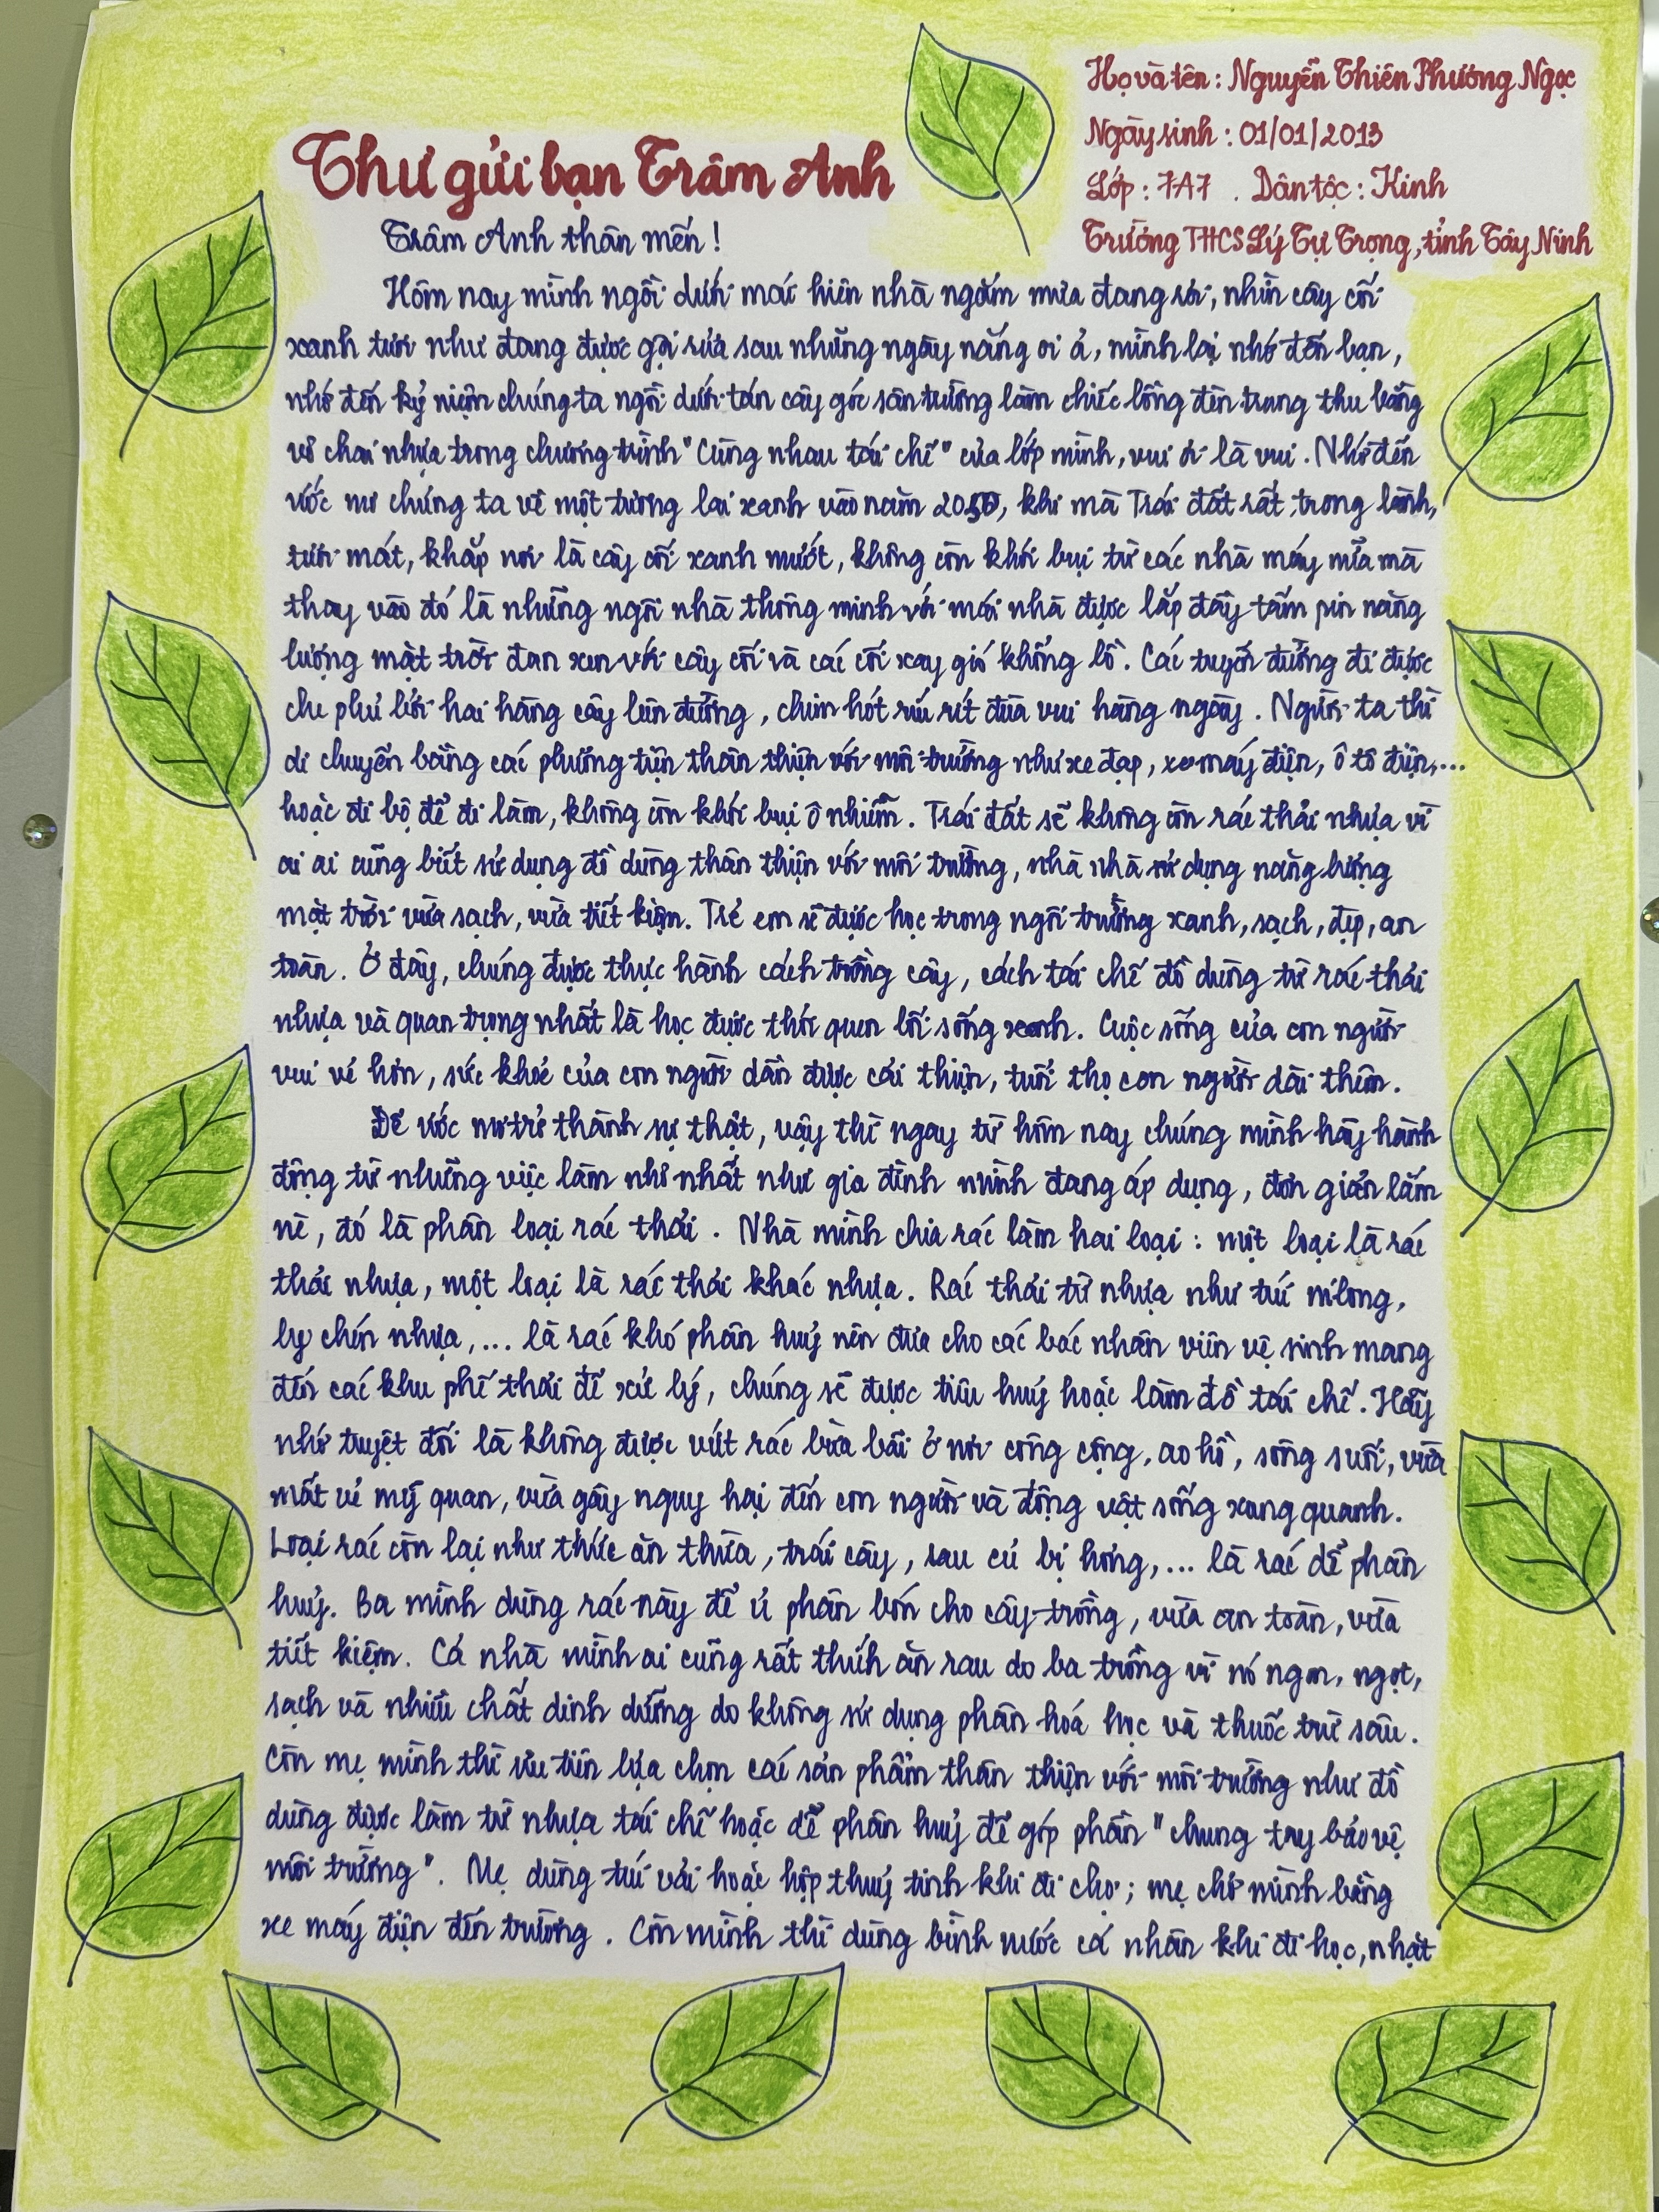 Họ và tên : Nguyễn Thiên Phương Ngọc
Ngày sinh : 01/01/2013
Lớp : 7A7 . Dân tộc : Kinh
Trường THCS Lý Tự Trọng, tỉnh Tây Ninh
Thư gửi bạn Trâm Anh
Trâm Anh thân mến !
Hôm nay mình ngồi dưới mái hiên nhà ngắm mưa đang rơi, nhìn cây cối
xanh tươi như đang được gội rửa sau những ngày nắng oi ả, mình lại nhớ đến bạn,
nhớ đến kỷ niệm chúng ta ngồi dưới tán cây góc sân trường làm chiếc lồng đèn trung thu bằng
vỏ chai nhựa trong chương trình "Cùng nhau tái chế" của lớp mình, vui ơi là vui. Nhớ đến
ước mơ chúng ta về một tương lai xanh vào năm 2050, khi mà Trái đất rất trong lành,
tươi mát, khắp nơi là cây cối xanh mướt, không còn khói bụi từ các nhà máy nữa mà
thay vào đó là những ngôi nhà thông minh với mái nhà được lắp đầy tấm pin năng
lượng mặt trời đan xen với cây cối và cái cối xay gió khổng lồ. Các tuyến đường đi được
che phủ bởi hai hàng cây bên đường, chim hót ríu rít đùa vui hàng ngày. Người ta thì
di chuyển bằng các phương tiện thân thiện với môi trường như xe đạp, xe máy điện, ô tô điện,...
hoặc đi bộ để đi làm, không còn khói bụi ô nhiễm. Trái đất sẽ không còn rác thải nhựa vì
ai ai cũng biết sử dụng đồ dùng thân thiện với môi trường, nhà nhà sử dụng năng lượng
mặt trời vừa sạch, vừa tiết kiệm. Trẻ em sẽ được học trong ngôi trường xanh, sạch, đẹp, an
toàn. Ở đây, chúng được thực hành cách trồng cây, cách tái chế đồ dùng từ rác thải
nhựa và quan trọng nhất là học được thói quen lối sống xanh. Cuộc sống của con người
vui vẻ hơn, sức khoẻ của con người dần được cải thiện, tuổi thọ con người dài thêm.
Để ước mơ trở thành sự thật, vậy thì ngay từ hôm nay chúng mình hãy hành
động từ những việc làm nhỏ nhất như gia đình mình đang áp dụng, đơn giản lắm
nè, đó là phân loại rác thải. Nhà mình chia rác làm hai loại : một loại là rác
thải nhựa, một loại là rác thải khác nhựa. Rác thải từ nhựa như túi nilong,
ly chén nhựa,... là rác khó phân huỷ nên đưa cho các bác nhân viên vệ sinh mang
đến các khu phế thải để xử lý, chúng sẽ được tiêu huỷ hoặc làm đồ tái chế. Hãy
nhớ tuyệt đối là không được vứt rác bừa bãi ở nơi công cộng, ao hồ, sông suối, vừa
mất vẻ mỹ quan, vừa gây nguy hại đến con người và động vật sống xung quanh.
Loại rác còn lại như thức ăn thừa, trái cây, rau củ bị hỏng,... là rác dễ phân
huỷ. Ba mình dùng rác này để ủ phân bón cho cây trồng, vừa an toàn, vừa
tiết kiệm. Cả nhà mình ai cũng rất thích ăn rau do ba trồng vì nó ngon, ngọt,
sạch và nhiều chất dinh dưỡng do không sử dụng phân hoá học và thuốc trừ sâu.
Còn mẹ mình thì ưu tiên lựa chọn các sản phẩm thân thiện với môi trường như đồ
dùng được làm từ nhựa tái chế hoặc dễ phân huỷ để góp phần "chung tay bảo vệ
môi trường". Mẹ dùng túi vải hoặc hộp thuỷ tinh khi đi chợ; mẹ chở mình bằng
xe máy điện đến trường. Còn mình thì dùng bình nước cá nhân khi đi học, nhặt